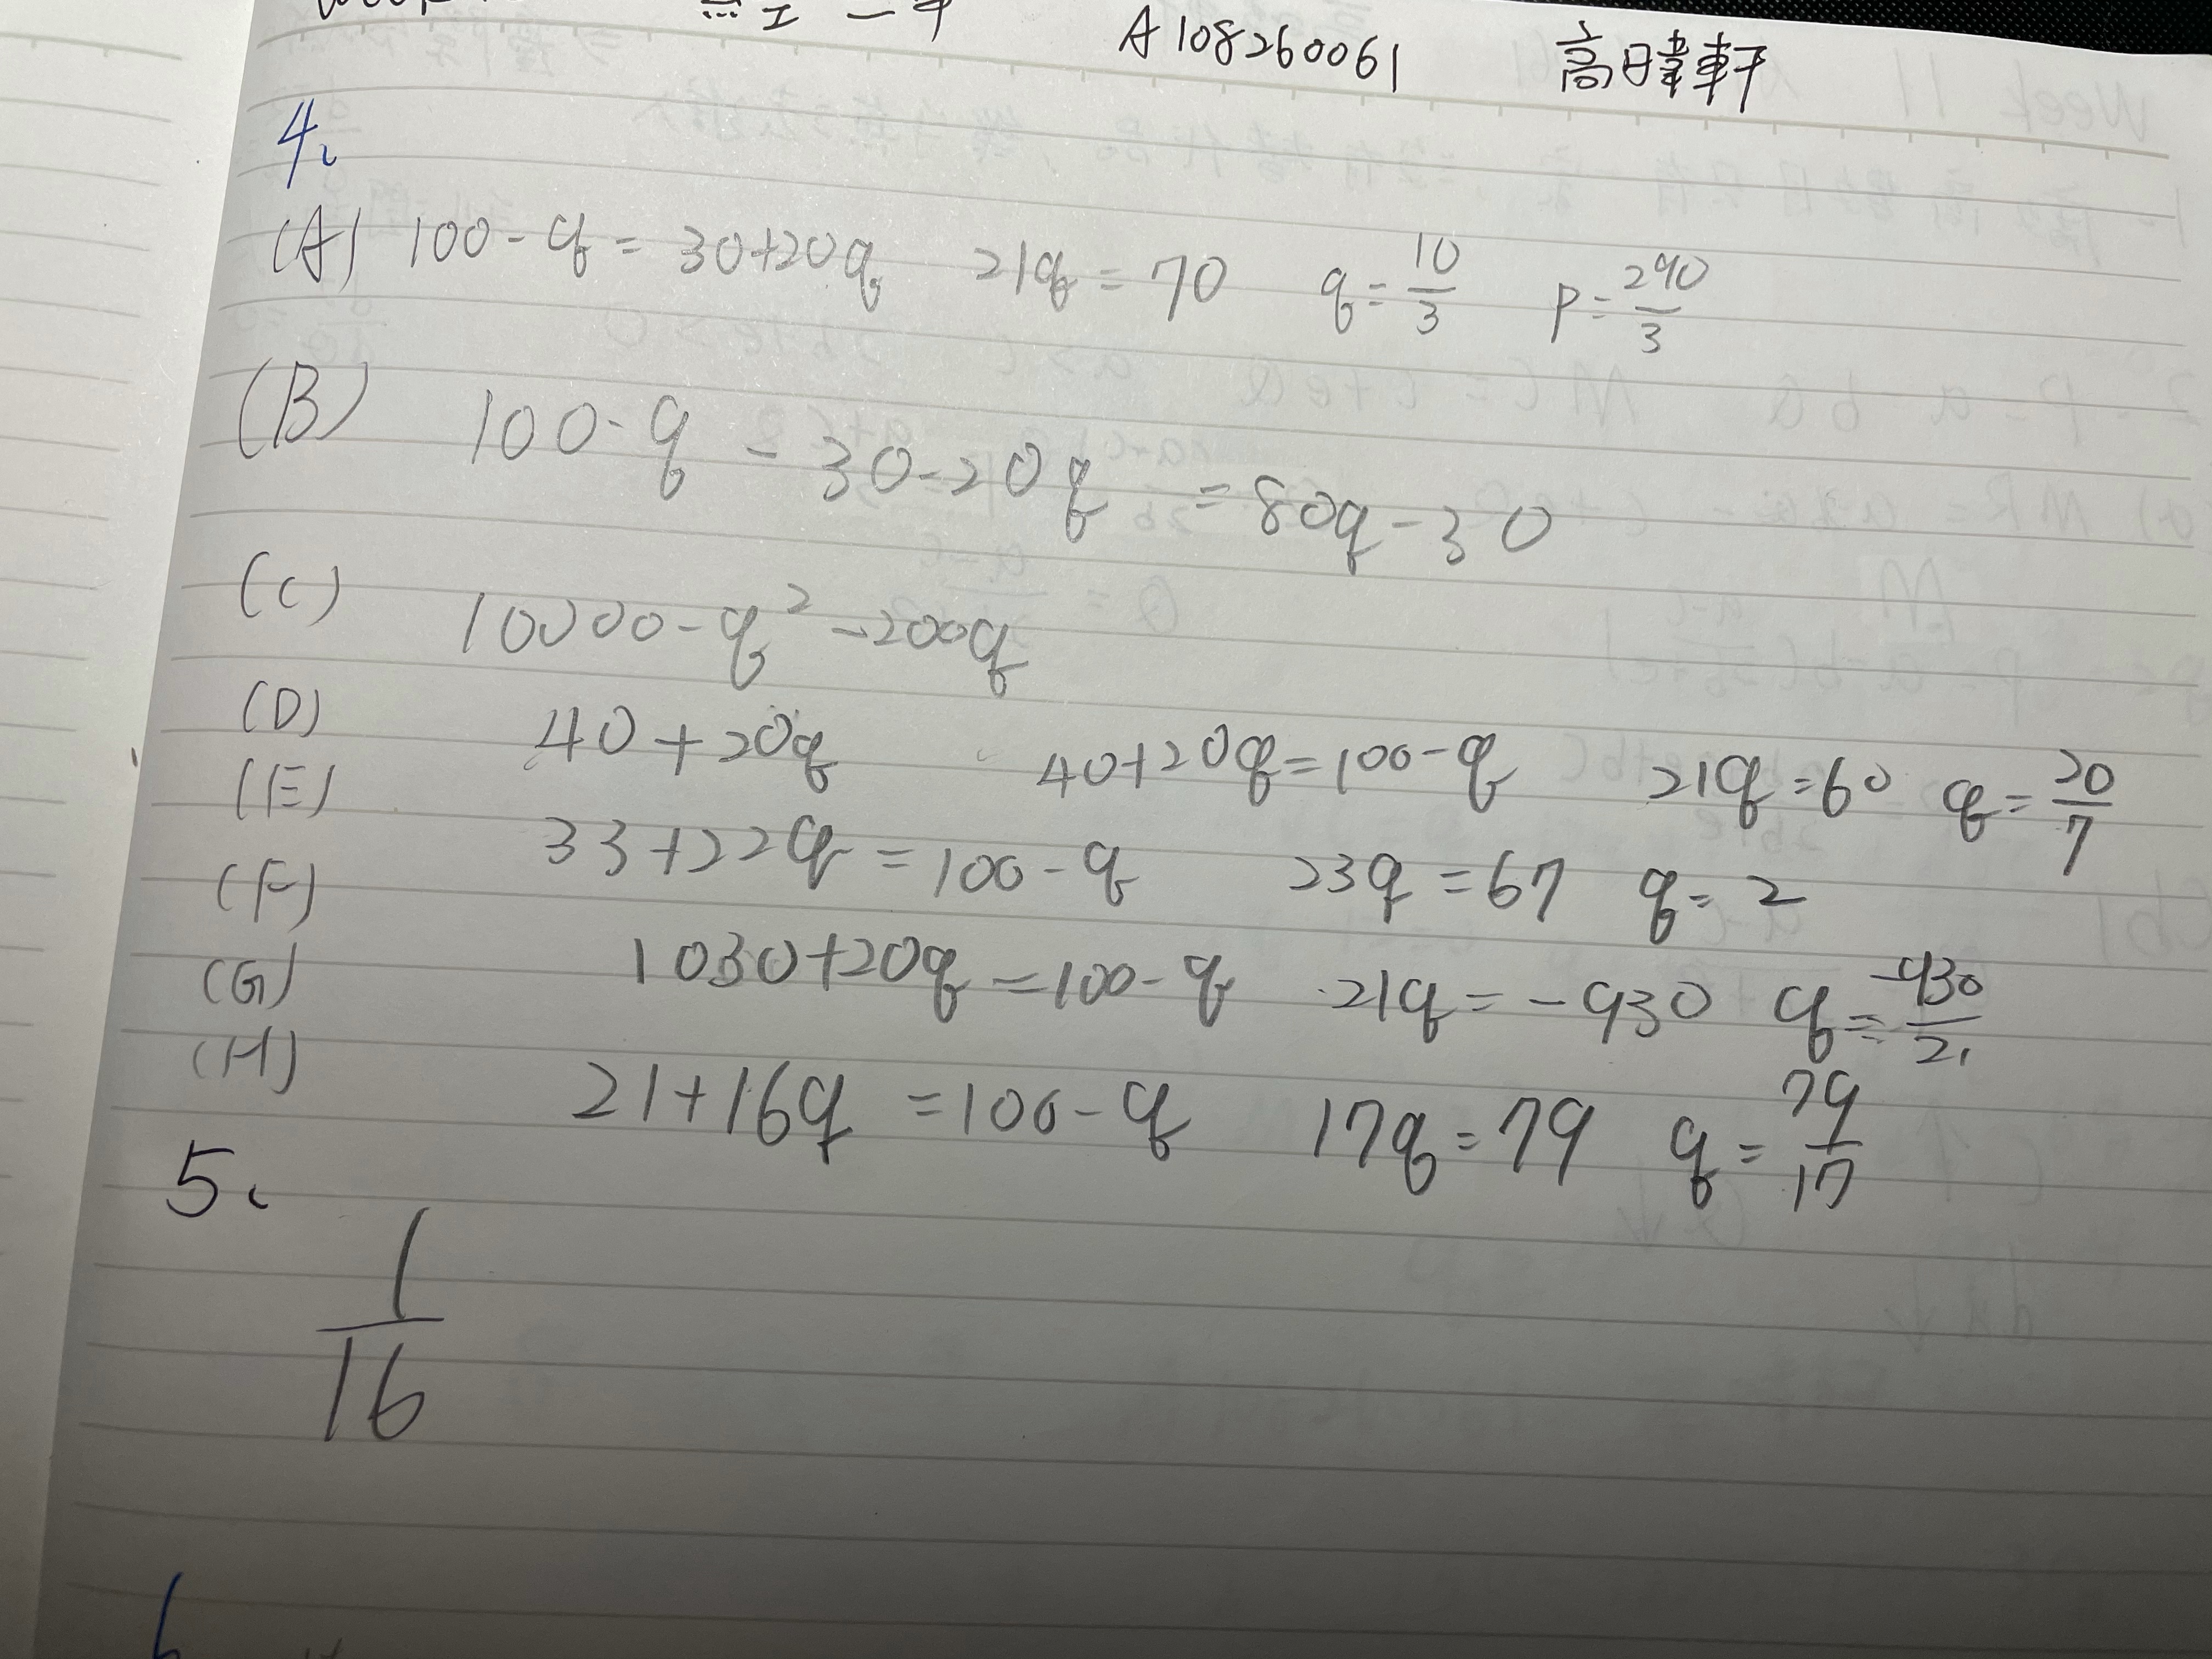 A108260061 高暐軒
4、
(A) 100-q = 30+20q 21q = 70 q = 10/3 p = 290/3
(B) 100-q - 30-20q = 80q-30
(C) 10000-q²-200q
(D) 40+20q 40+20q=100-q 21q=60 q=20/7
(E) 33+22q=100-q 23q=67 q=2
(F)
(G) 1030+20q=100-q 21q=-930 q=-930/21
(H) 21+16q=100-q 17q=79 q=79/17
5、
1/16